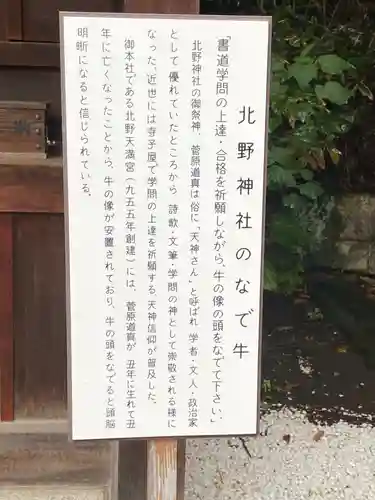 北野神社のなで牛
「書道学問の上達・合格を祈願しながら、牛の像の頭をなでて下さい」
北野神社の御祭神、菅原道真は俗に「天神さん」と呼ばれ、学者・文人・政治家
として優れていたところから、詩歌・文筆・学問の神として崇敬される様に
なった。近世には寺子屋で学問の上達を祈願する、天神信仰が普及した。
御本社である北野天満宮(九五五年創建)には、菅原道真が、丑年に生れて丑
年に亡くなったことから、牛の像が安置されており、牛の頭をなでると頭脳
明晰になると信じられている。